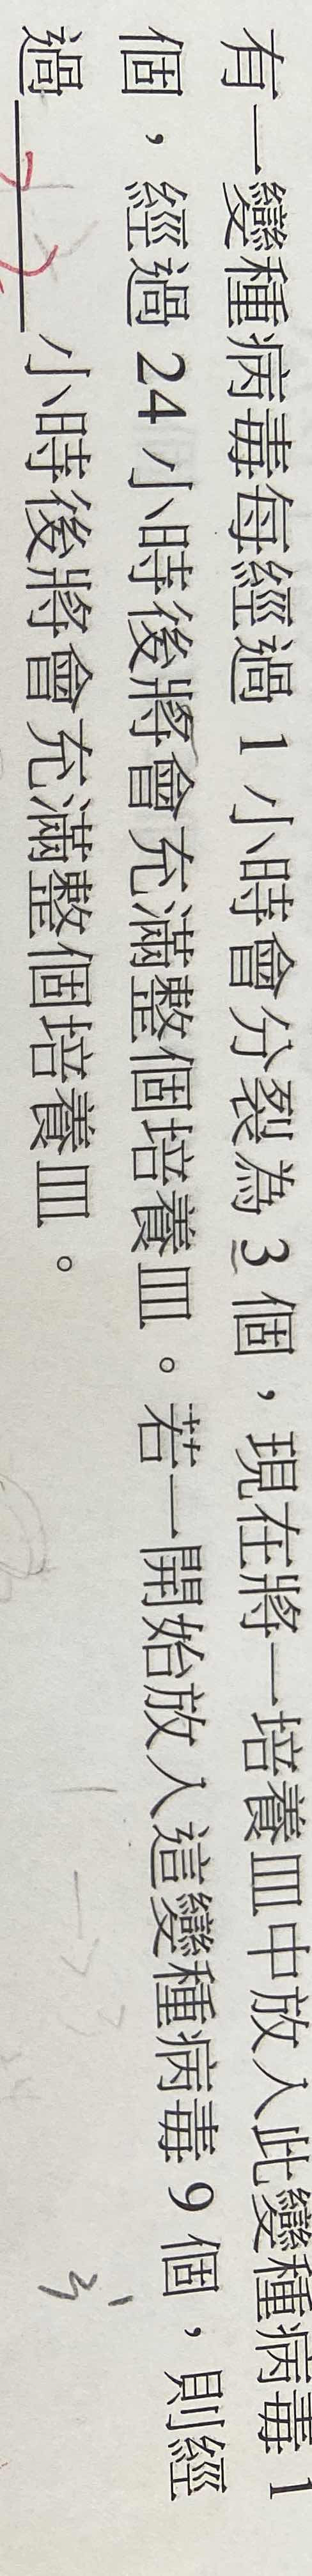 有一變種病毒每經過 1 小時會分裂為 3 個，現在將一培養皿中放入此變種病毒 1
個，經過 24 小時後將會充滿整個培養皿。若一開始放入這變種病毒 9 個，則經
過＿＿＿小時後將會充滿整個培養皿。